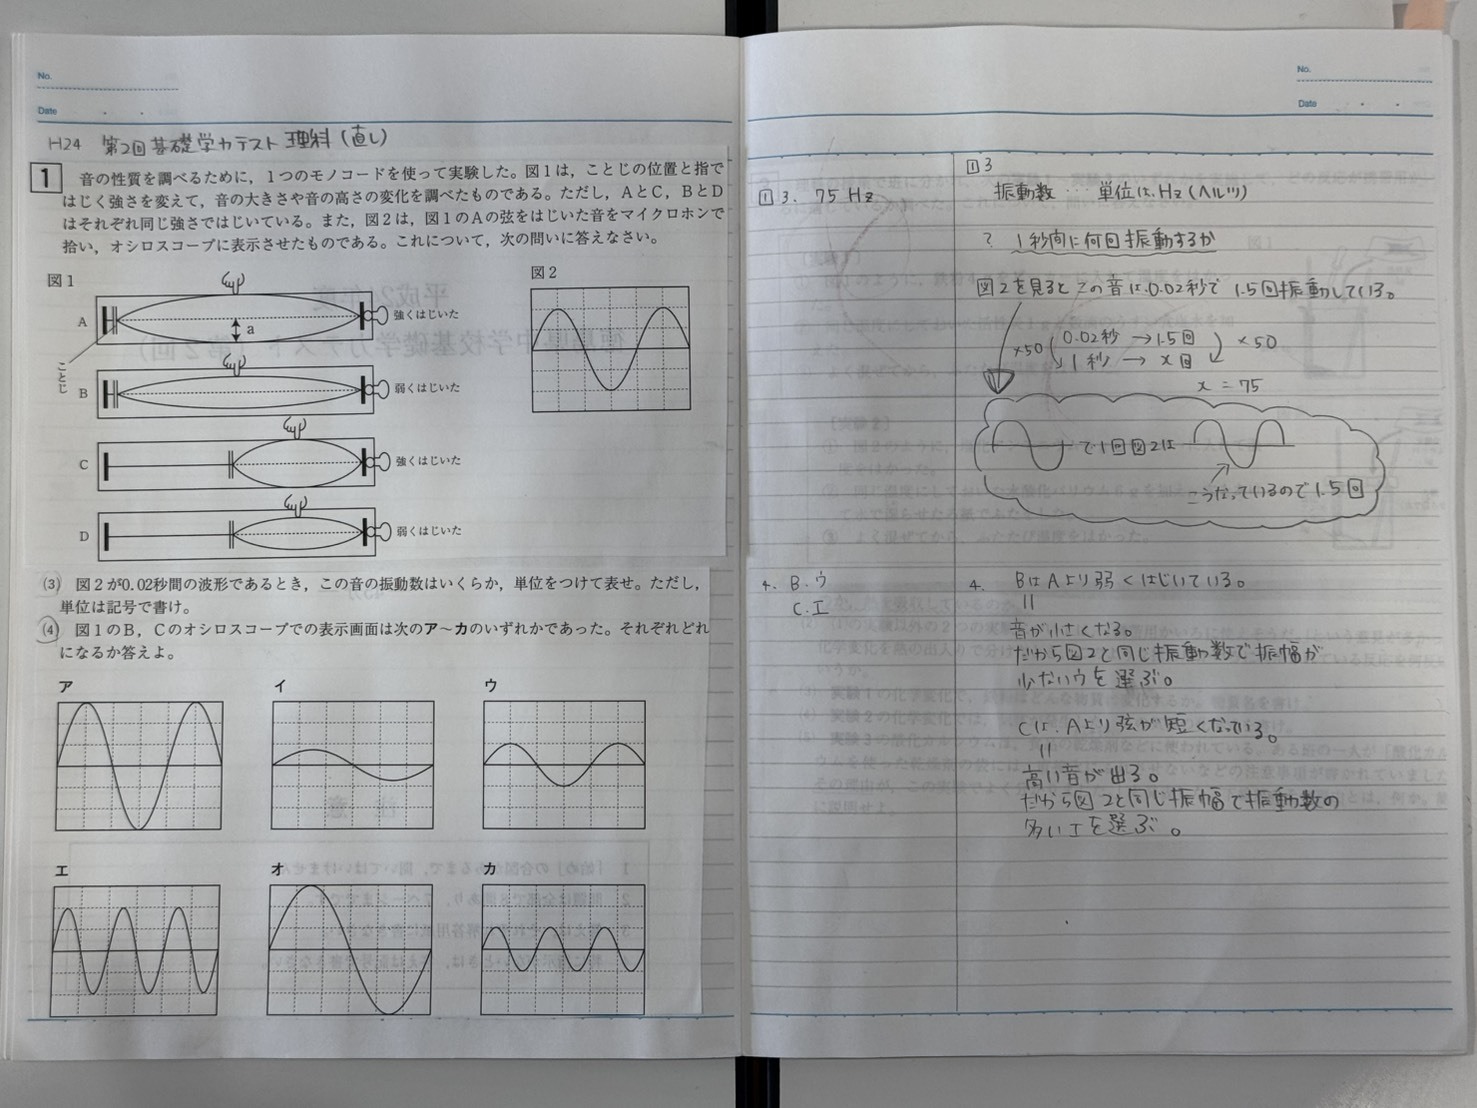 No.
Date
H24 第2回基礎学力テスト 理科(直し)
1 音の性質を調べるために，1つのモノコードを使って実験した。図1は，ことじの位置と指で
はじく強さを変えて，音の大きさや音の高さの変化を調べたものである。ただし，AとC，BとD
はそれぞれ同じ強さではじいている。また，図2は，図1のAの弦をはじいた音をマイクロホンで
拾い，オシロスコープに表示させたものである。これについて，次の問いに答えなさい。
図1
図2
A
強くはじいた
a
ことじ
B
弱くはじいた
C
強くはじいた
D
弱くはじいた
(3) 図2が0.02秒間の波形であるとき，この音の振動数はいくらか，単位をつけて表せ。ただし，
単位は記号で書け。
(4) 図1のB，Cのオシロスコープでの表示画面は次のア～カのいずれかであった。それぞれどれ
になるか答えよ。
ア
イ
ウ
エ
オ
カ
No.
Date
1 3. 75 Hz
1 3
振動数 … 単位は.Hz(ヘルツ)
? 1秒間に何回振動するか
図2を見るとこの音は.0.02秒で 1.5回振動している。
×50
0.02秒 → 1.5回
1 秒 → x 回
×50
x = 75
で1回図2は
こうなっているので1.5回
4. B.ウ
C.エ
4. BはAより弱くはじいている。
||
音が小さくなる。
だから図2と同じ振動数で振幅が
少ないウを選ぶ。
Cは.Aより弦が短くなっている。
||
高い音が出る。
だから図2と同じ振幅で振動数の
多いエを選ぶ。